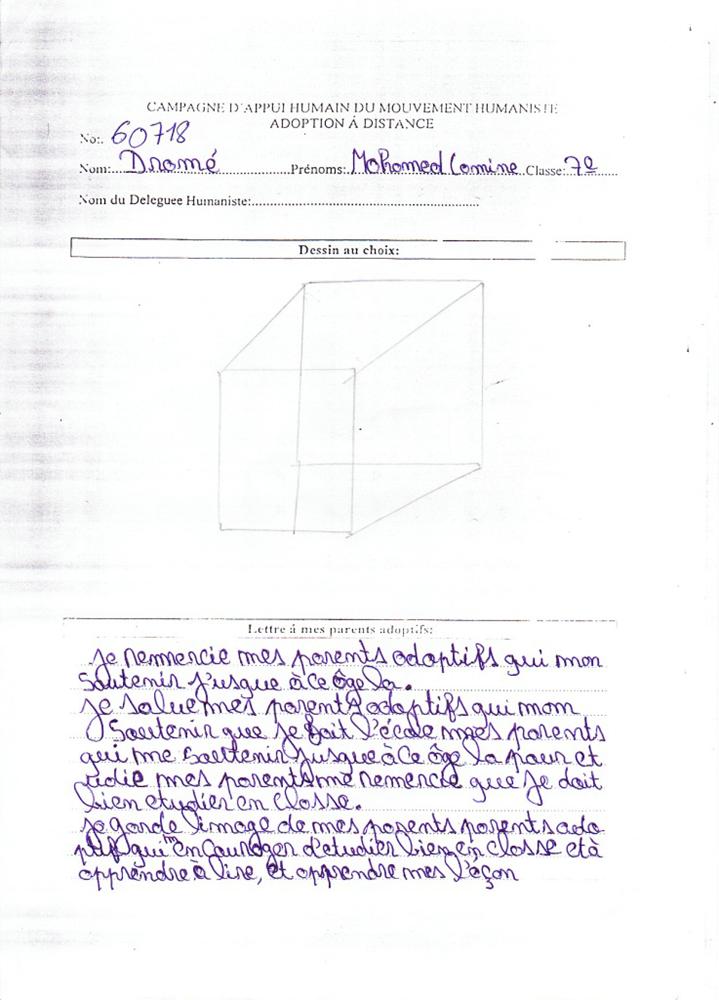 CAMPAGNE D'APPUI HUMAIN DU MOUVEMENT HUMANISTE
ADOPTION Á DISTANCE
No:. 60718
Nom:....Dramé.......................Prénoms:..Mohamed Lamine..Classe:.7º....
Nom du Deleguee Humaniste:..........................................................
Dessin au choix:
Lettre á mes parents adoptifs:
je remmercie mes parents adoptifs qui mon
Soutenir j'usque à ce âge la.
je salue mes parents adoptifs qui mom
Soeutenir que je fait l'école mes parents
qui me Soeutenir jusque à ce âge la pour et
udie mes parents me remercie que je doit
bien etudier en classe.
je garde l'image de mes parents parents ado
ptifs qui m'encourager d'etudier bien en classe et à
apprendre à lire, et apprendre mes l'eçon